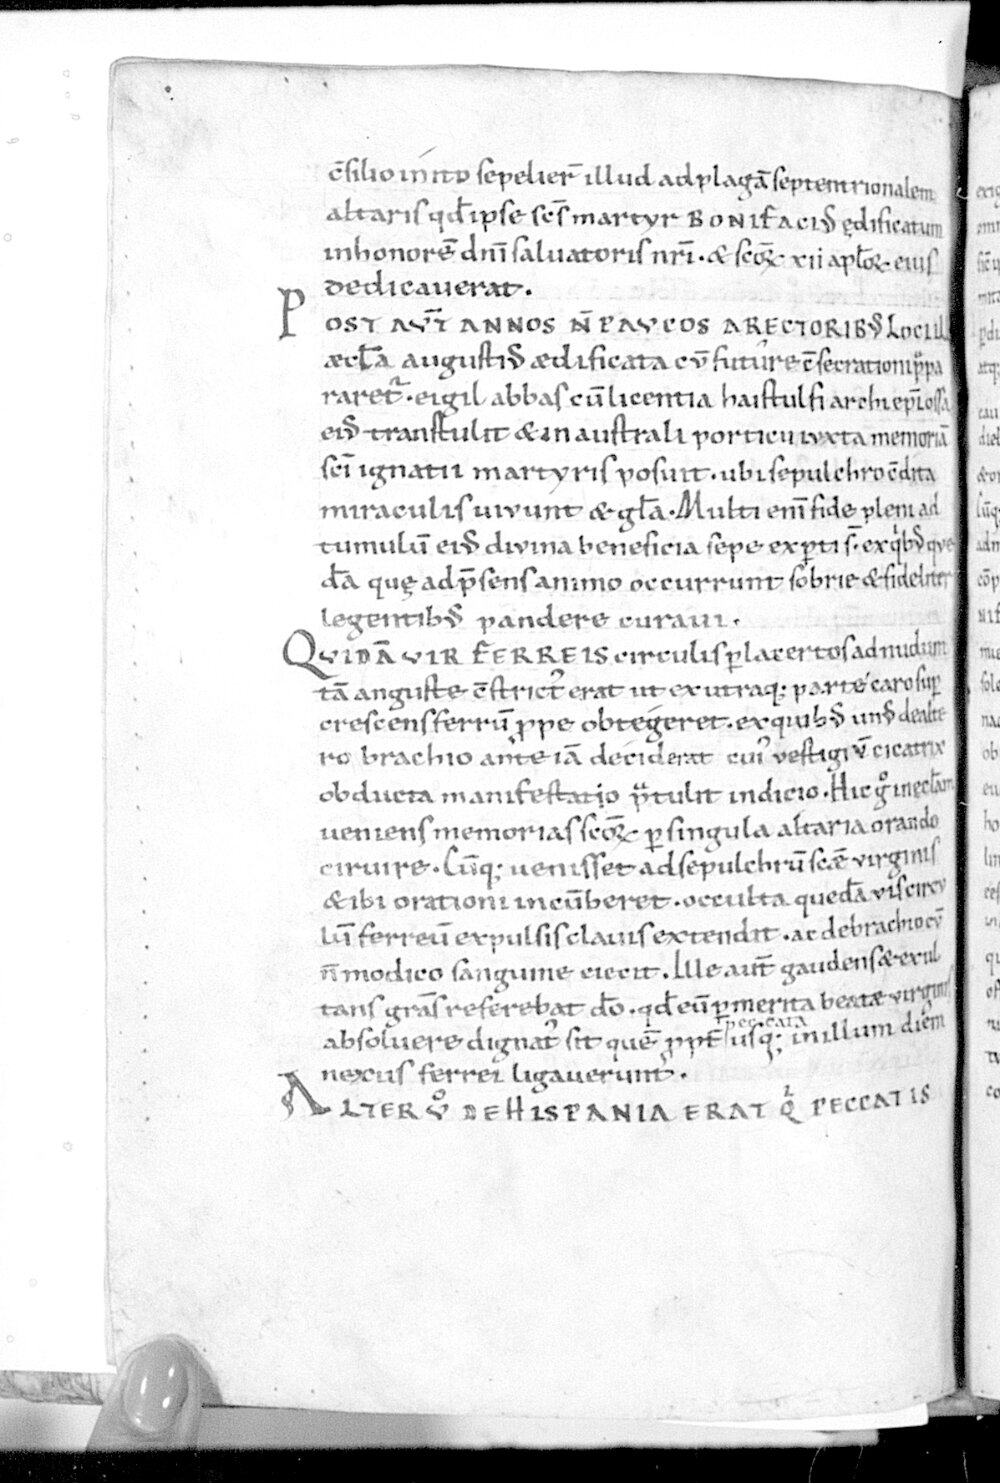 c̄silio inito sepelier̄ illud ad plagā septemtrionalem
altaris qđ ipse sc̄s martyr BONIFACIꝰ ędificatum
in honorē dn̄i saluatoris nr̄i · & sc̄oꝝ xii apl̄oꝝ eius
dedicauerat .
POST AUT̄ ANNOS N̄ PAUCOS A RECTORIBꝰ LOCI ILL
æccl̄a augustiꝰ ædificata cū futurę c̄secrationi p̄pa
raret᷑ · eigil abbas cū licentia haistulfi archiep̄i ossa
eiꝰ transtulit & in australi porticu iuxta memoriā
sc̄i ignatii martyris posuit · ubi sepulchro c̄dita
miraculis uiuunt & gl̄a · Multi eni᷑ fide pleni ad
tumulū eiꝰ diuina beneficia sepe exꝑti s̄ · ex qͥbꝰ que
dā quę ad p̄sens animo occurrunt sobrie & fideliter
legentibꝰ pandere curaui .
QUIDĀ UIR FERREIS circulis ꝑ lacertos ad nudum
tā anguste c̄strictꝰ erat ut ex utraq; parte caro suꝑ
crescens ferrū ꝓpe obtegeret · ex quibꝰ unꝰ de alte
ro brachio ante iā deciderat cuiꝰ uestigiū cicatrix
obducta manifestatio p̄tulit indicio · Hic gͦ in ęcl̄am
ueniens memorias sc̄oꝝ ꝑ singula altaria orando
circuire · Cūq; uenisset ad sepulchrū sc̄æ uirginis
& ibi orationi incūberet · occulta quedā uis circu
lū ferreū expulsis clauis extendit · ac de brachio cū
n̄ modico sanguine eiecit · Ille aut̄ gaudens & exul
tans gr̄as referebat dō · qđ eū ꝑ merita beatæ uirginis
absoluere dignatꝰ sit quē ꝓpt̄ peccata usq; in illum diēm
nexus ferrei ligauerunt .
ALTER Uͦ DE HISPANIA ERAT Qͥ PECCATIS